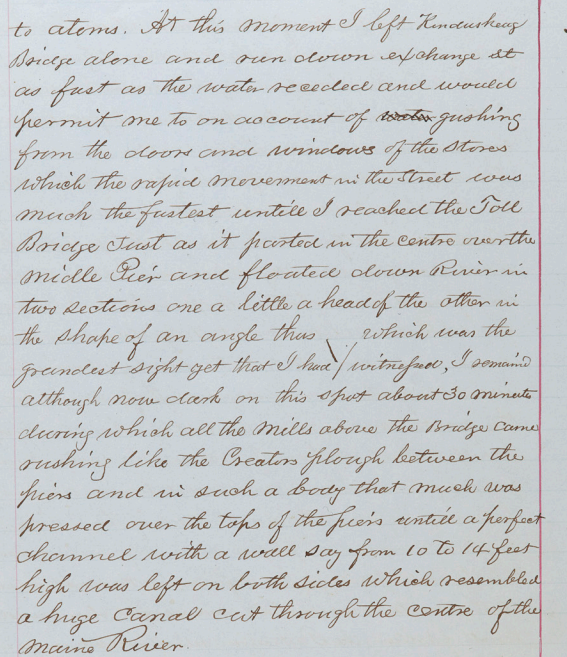 to atoms. At this moment I left Kenduskeag
Bridge alone and run down exchange St
as fast as the water receded and would
permit me to on account of water gushing
from the doors and windows of the stores
which the rapid movement in the street was
much the fastest untill I reached the Toll
Bridge Just as it parted in the centre over the
midle Pier and floated down River in
two sections one a little a head of the other in
the shape of an angle thus \ / which was the
grandest sight yet that I had witnessed, I remaind
although now dark on this spot about 30 minutes
during which all the Mills above the Bridge came
rushing like the Creators plough between the
piers and in such a body that much was
pressed over the tops of the piers untill a perfect
channel with a wall say from 10 to 14 feet
high was left on both sides which resembled
a huge canal cut through the centre of the
Maine River.